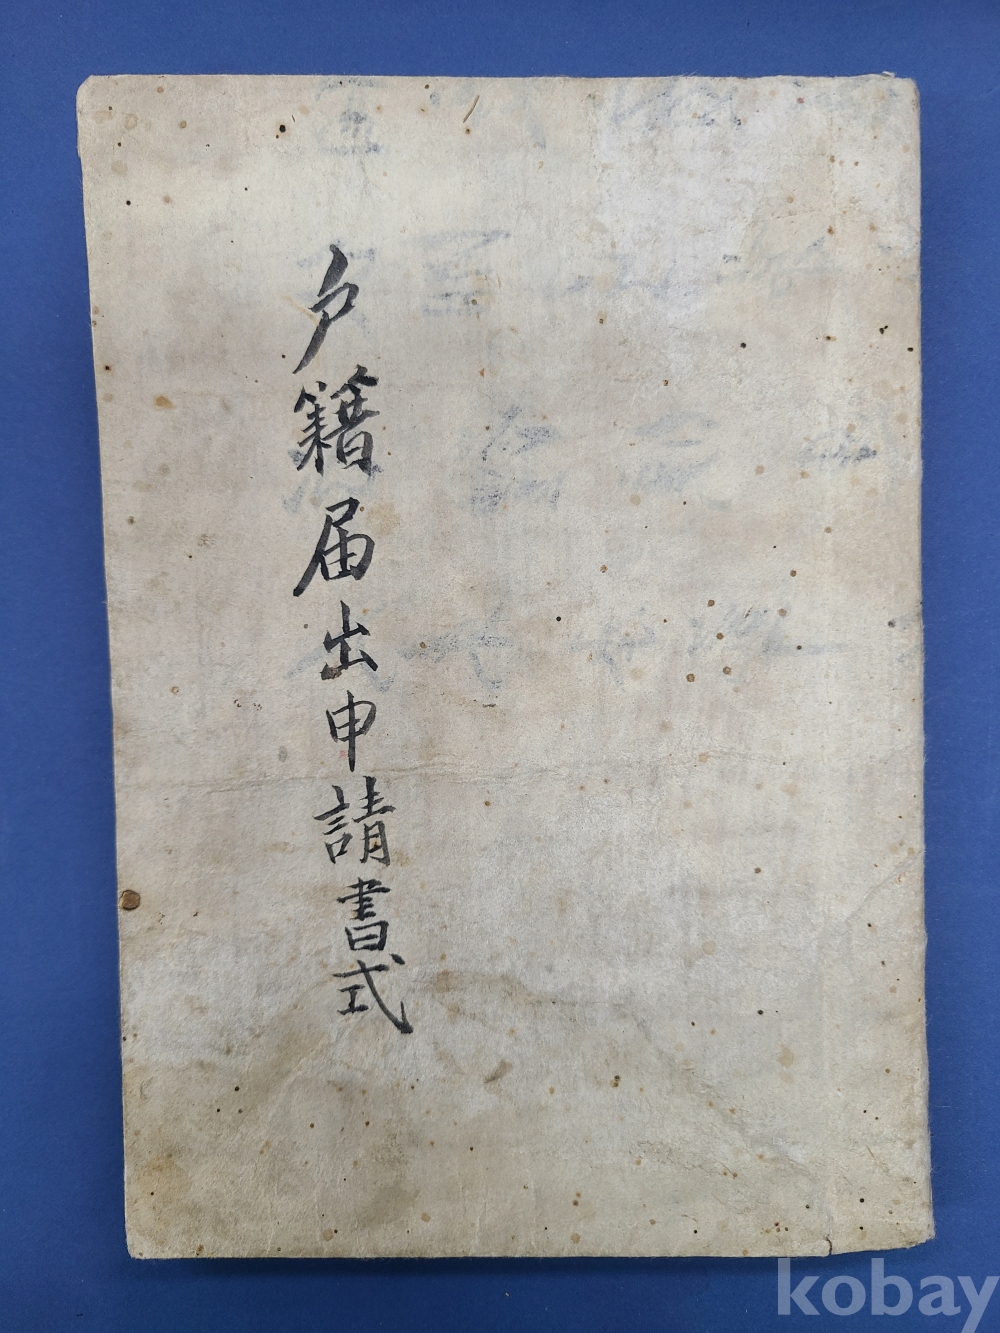 戶籍届出申請書式
kobay